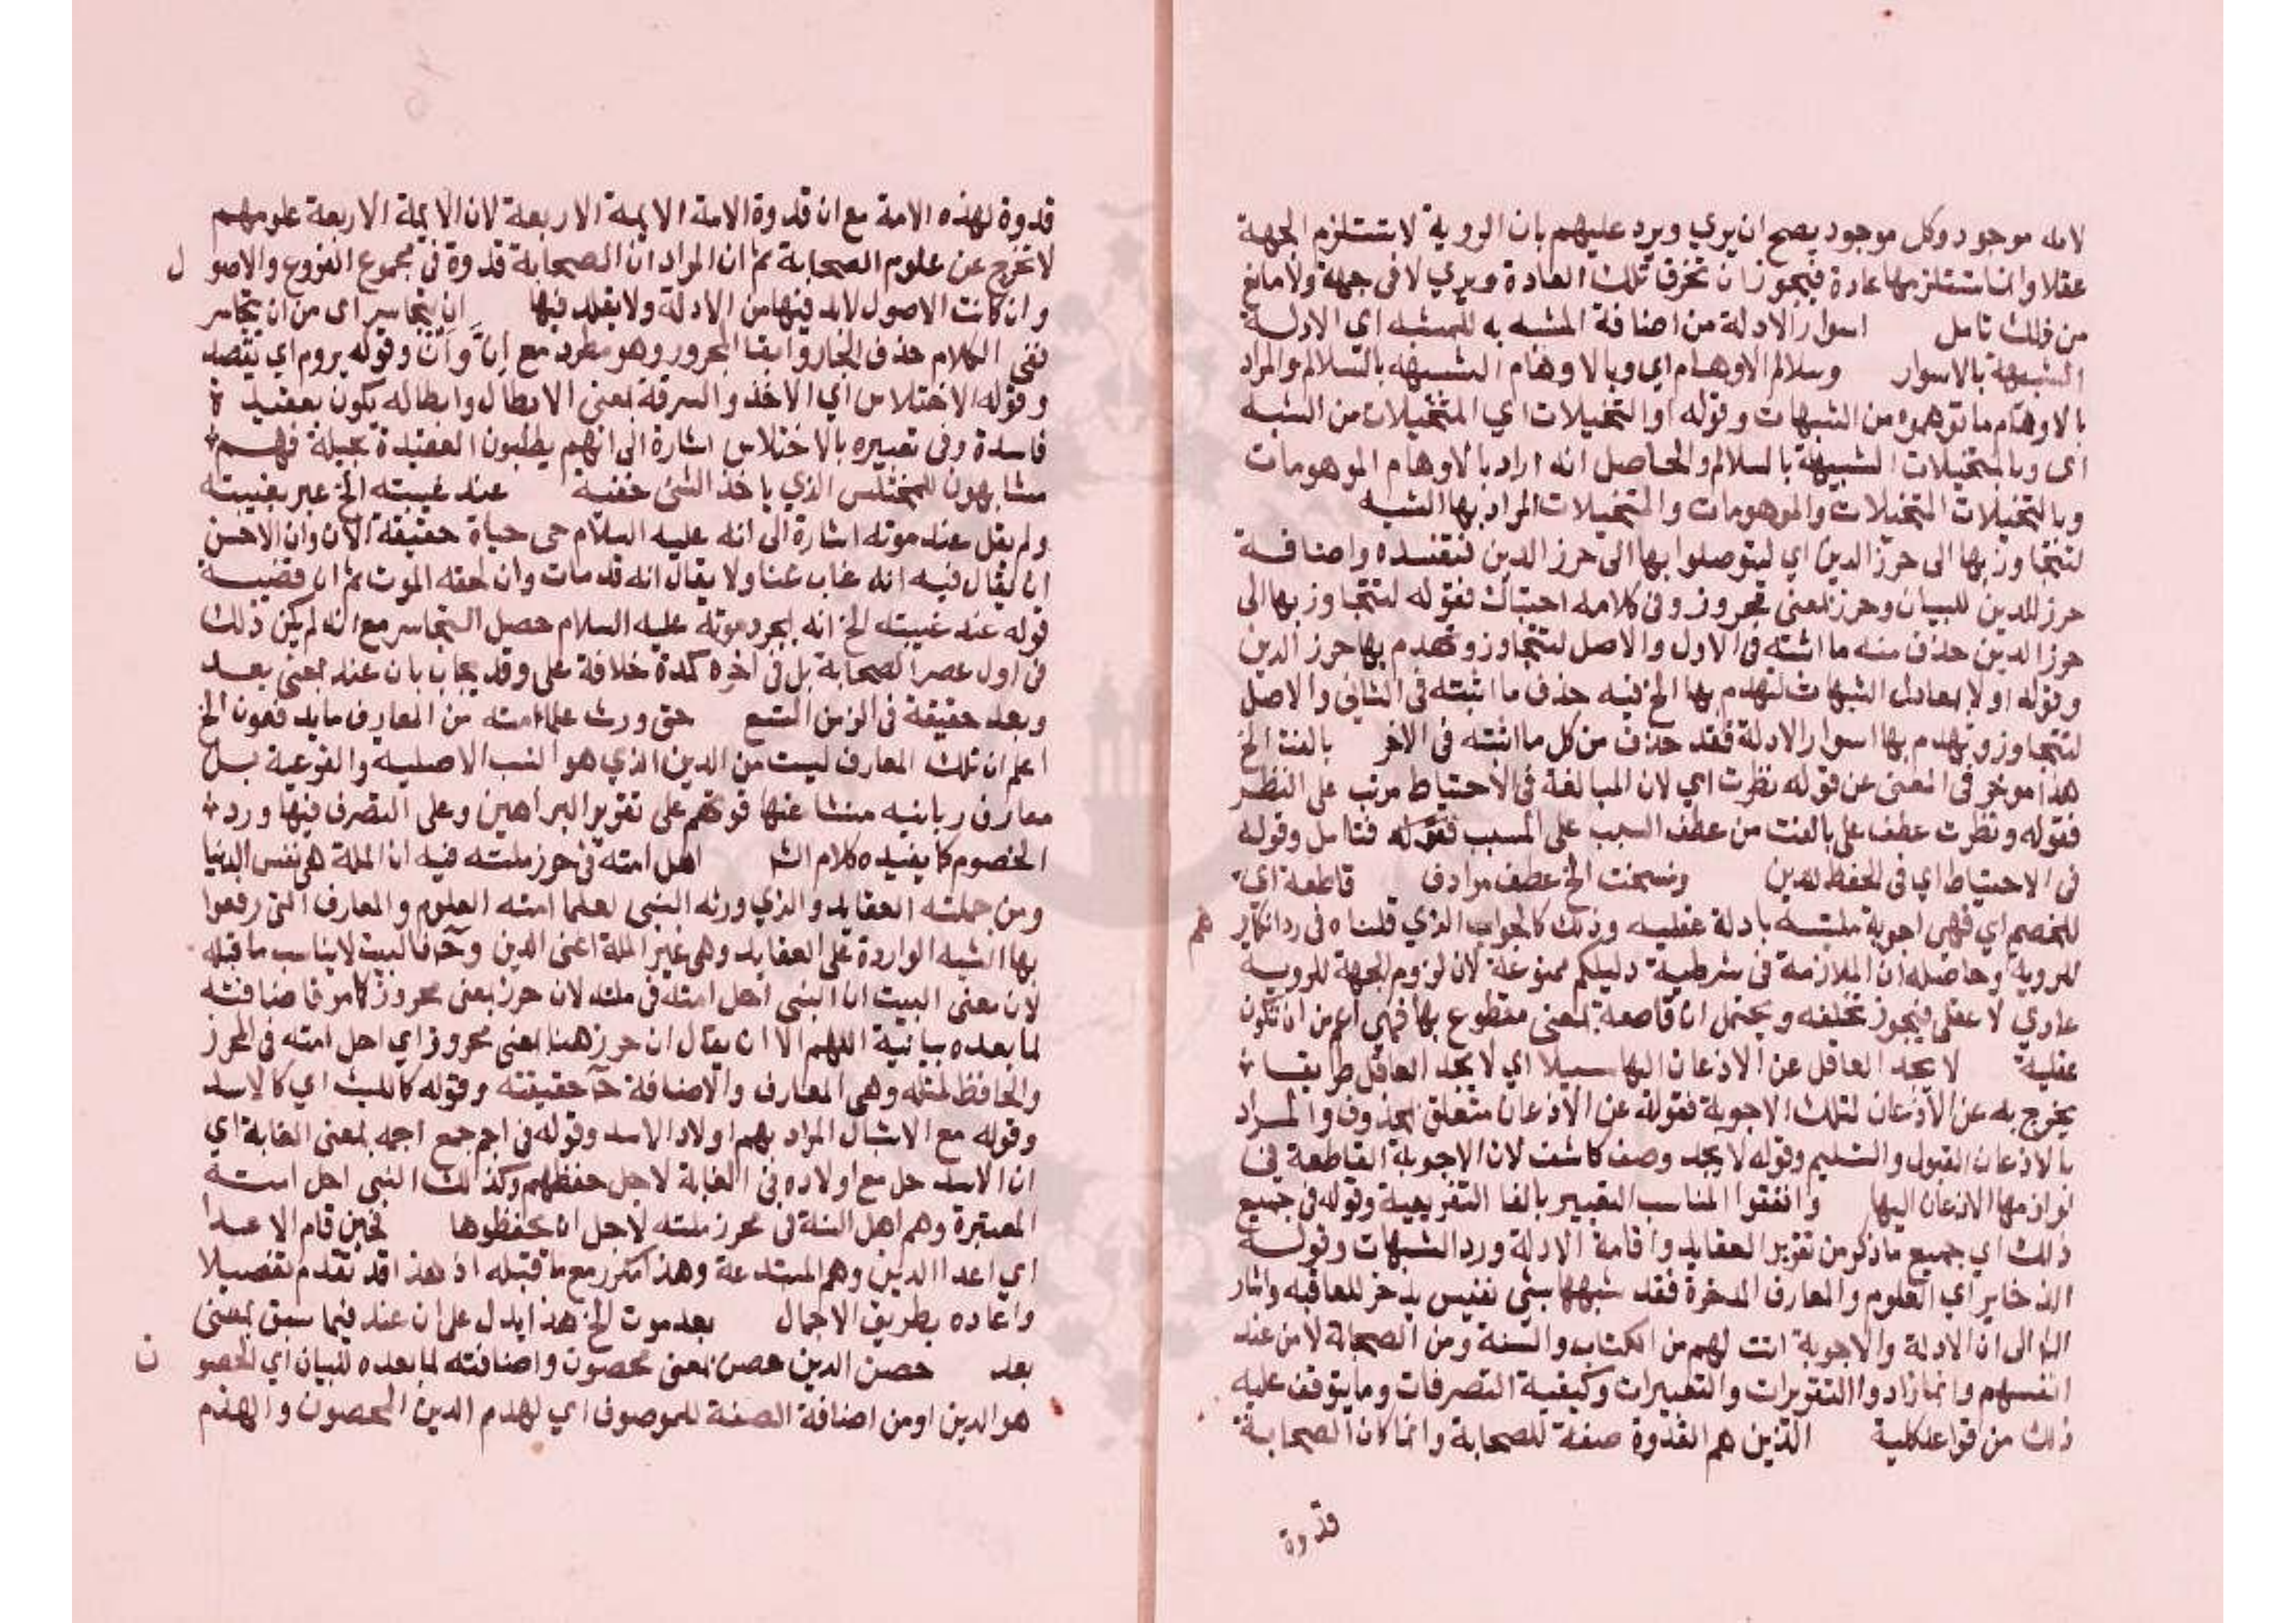 لانه موجود وكل موجود يصح ان يري ويرد عليهم بان الروية لا تستلزم الجهة
عقلا وانما تستلزمها عادة فيجوز ان تخرق تلك العادة ويري لا في جهة ولا مانع
من ذلك تامل اسوار الادلة من اضافة المشبه به للمشبه اي الادلة
الشبيهة بالاسوار وسلالم الاوهام اي وبالاوهام الشبيهه بالسلالم والمراد
بالاوهام ما توهموه من الشبهات وقوله او التخيلات اي المتخيلات من الشبه
اي وبالمتخيلات الشبيهة بالسلالم والحاصل انه اراد بالاوهام الموهومات
وبالتخيلات المتخيلات والموهومات والمتخيلات المراد بها الشبه
لتتجاوز بها الى حرز الدين اي ليتوصلوا بها الى حرز الدين فتفسده واضافة
حرز للدين للبيان وحرز بمعنى محروز وفي كلامه احتباك فقوله لتتجاوز بها الى
حرز الدين حذف منه ما اثبته في الاول والاصل لتتجاوز وتهدم بها حرز الدين
وقوله اولا الشبهات لتهدم بها الخ فيه حذف ما اثبته في الثاني والاصل
لتتجاوز وتهدم بها اسوار الادلة فقد حذف من كل ما اثبته في الاخر بالغت الخ
هذا موخر في المعنى عن قوله نظرت اي لان المبالغة في الاحتياط مرتب على النظر
فقوله ونظرت عطف على بالغت من عطف السبب على المسبب فقوله فتامل وقوله
في الاحتياط اي في الحفظ للدين ونسحت الخ عطف مرادف قاطعة اي
للخصم اي فهي اجوبة ملتبسه بادلة عقليه وذلك كالجواب الذي قلناه في رد انكارهم
للروية وحاصله ان الملازمة في شرطية دليلكم ممنوعة لان لزوم الجهة للروية
عادي لا عقلي فيجوز تخلفه ويحتمل ان قاطعة بمعنى مقطوع بها فهي اعم من ان تكون
عقلية لا يجد العاقل عن الاذعان اليها سبيلا اي لا يجد العاقل طريقا
يخرج به عن الاذعان لتلك الاجوبة فقوله عن الاذعان متعلق بمحذوف والمراد
بالاذعان القبول والتسليم وقوله لا يجد وصف كاشف لان الاجوبة القاطعة من
لوازمها الاذعان اليها وانفقوا المناسب التعبير بالفا التفريعية وقوله في جميع
ذلك اي جميع ما ذكر من تقرير العقايد واقامة الادلة ورد الشبهات وقوله
الذخاير اي العلوم والمعارف المدخرة فقد شبهها بشي نفيس يدخر للعاقبه واشار
الى ان الادلة والاجوبة اتت لهم من الكتاب والسنة ومن الصحابة لا من عند
انفسهم وانما زادوا التقريرات والتعبيرات وكيفية التصرفات وما يتوقف عليه
ذلك من قواعد كلية الذين هم القدوة صفة للصحابة وانما كان الصحابة
قدوة
قدوة لهذه الامة مع ان قدوة الامة الايمة الاربعة لان الايمة الاربعة علومهم
لا تخرج عن علوم الصحابة ثم ان المراد ان الصحابة قدوة في مجموع الفروع والاصول
وان كانت الاصول لابد فيها من الادلة ولا يقلد فيها ان يتجاسر اي من ان يتجاسر
نفي الكلام حذف الجار وابقا المجرور وهو مطرد مع انّ وأن وقوله يروم اي يقصد
وقوله الاختلاس اي الاخذ والسرقة بمعنى الابطال وابطاله يكون بعقيدة
فاسدة وفي تعبيره بالاختلاس اشارة الى انهم يطلبون العقيدة بحيلة فهم
مشابهون للمختلس الذي ياخذ الشي خفية عند غيبته الخ عبر بغيبته
ولم يقل عند موته اشارة الى انه عليه السلام حى حياة حقيقة الان وان الاحسن
ان يقال فيه انه غاب عنا ولا يقال انه قد مات وان لحقه الموت ثم ان قضية
قوله عند غيبته الخ انه بمجرد موته عليه السلام حصل التجاسر مع انه لم يكن ذلك
في اول عصر الصحابة بل في اخره كمدة خلافة على وقد يجاب بان عند بمعنى بعد
وبعد حقيقة في الزمن المتسع حتى ورث علماامته من المعارف ما يدفعون الخ
اعلم ان تلك المعارف ليست من الدين الذي هو النسب الاصلية والفرعية بل
معارف ربانيه منشا عنها قوتهم على تقرير البراهين وعلى التصرف فيها ورد
الخصوم كما يفيده كلام الشر اهل امته في حرز ملته فيه ان الملة هي نفس الدنيا
ومن جملته العقايد والذي ورثه النبي لعلما امته العلوم والمعارف التي رفعوا
بها الشبه الواردة على العقايد وهى غير الملة اعنى الدين وح فالبيت لا يناسب ما قبله
لان معنى البيت ان النبي احل امته في ملته لان حرز بمعنى محروز كامر فاضافته
لما بعده بيانية اللهم الا ان يقال ان حرز هنا بمعنى محروز اي احل امته في المحرز
والحافظ لمثله وهى المعارف والاضافة ح حقيقته وقوله كالليث اي كالاسد
وقوله مع الاشبال المراد بهم اولاد الاسد وقوله في اجم جمع اجمه بمعنى الغابة اي
ان الاسد حل مع اولاده في الغابة لاجل حفظهم وكذلك النبي احل امته
المعتبرة وهم اهل السنة في محرز ملته لاجل ان يحفظوها فحين قام الاعدا
اي اعدا الدين وهم المبتدعة وهذا مكرر مع ما قبله اذ هذا قد تقدم تفصيلا
واعاده بطريق الاجمال بعد موت الخ هذا يدل على ان عند فيما سبق بمعنى
بعد حصن الدين حصن بمعنى محصون واضافته لما بعده للبيان اي المحصون
هو الدين او من اضافة الصفة للموصوف اي لهدم الدين المحصون والهدم